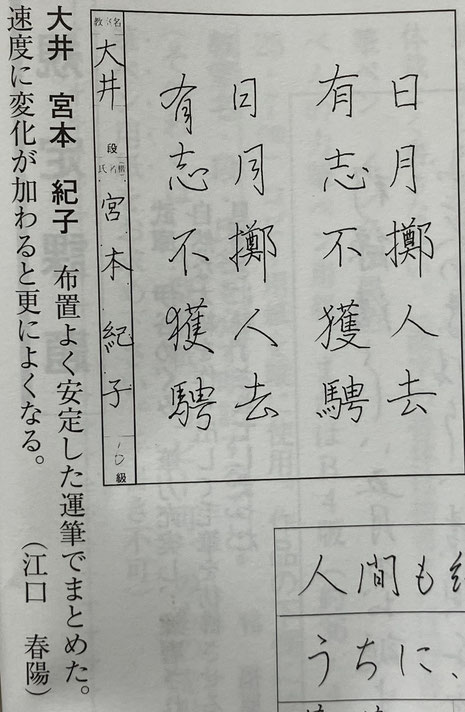 日月擲人去
有志不獲騁
日月擲人去
有志不獲騁
教名
大井
段
氏名
宮本紀子
級
人間も
うちに、
大井 宮本 紀子 布置よく安定した運筆でまとめた。
速度に変化が加わると更によくなる。 (江口 春陽)